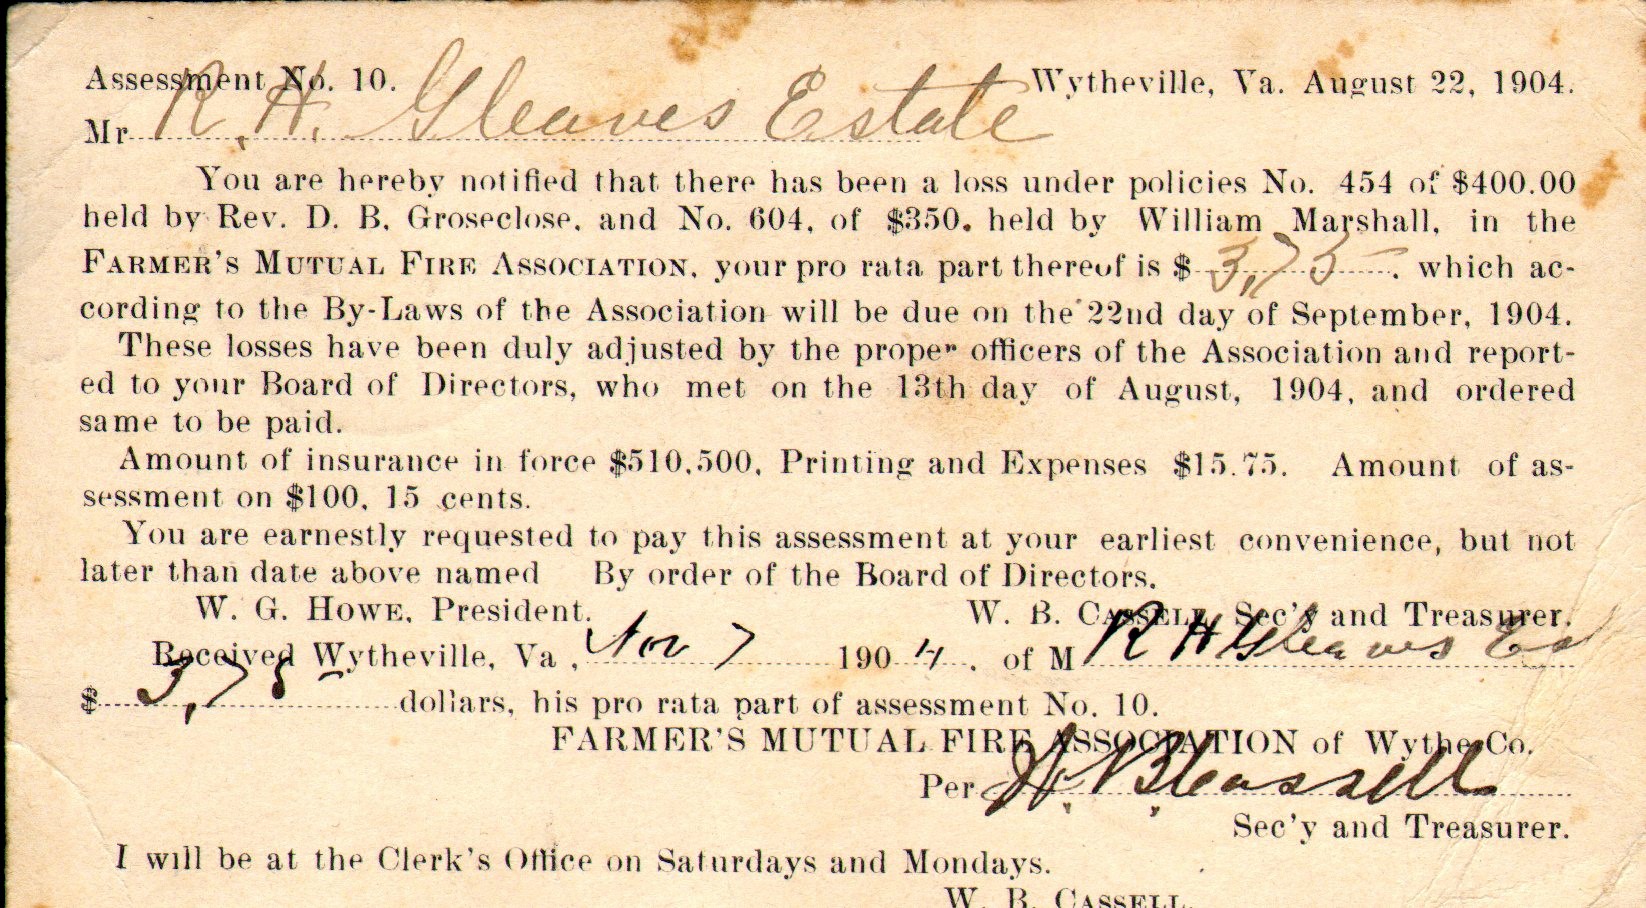 Assessment No. 10. Wytheville, Va. August 22, 1904.
Mr R. H. Gleaves Estate
You are hereby notified that there has been a loss under policies No. 454 of $400.00
held by Rev. D. B. Groseclose, and No. 604, of $350. held by William Marshall, in the
FARMER'S MUTUAL FIRE ASSOCIATION, your pro rata part thereof is $ 3,75 . which ac-
cording to the By-Laws of the Association will be due on the 22nd day of September, 1904.
These losses have been duly adjusted by the proper officers of the Association and report-
ed to your Board of Directors, who met on the 13th day of August, 1904, and ordered
same to be paid.
Amount of insurance in force $510,500, Printing and Expenses $15.75. Amount of as-
sessment on $100, 15 cents.
You are earnestly requested to pay this assessment at your earliest convenience, but not
later than date above named By order of the Board of Directors.
W. G. HOWE, President. W. B. CASSELL, Sec'y and Treasurer.
Received Wytheville, Va , Nov 7 1904 . of M R H Gleaves Es
$ 3,75 dollars, his pro rata part of assessment No. 10.
FARMER'S MUTUAL FIRE ASSOCIATION of Wythe Co.
Per W. B. Cassell
Sec'y and Treasurer.
I will be at the Clerk's Office on Saturdays and Mondays.
W. B. CASSELL.